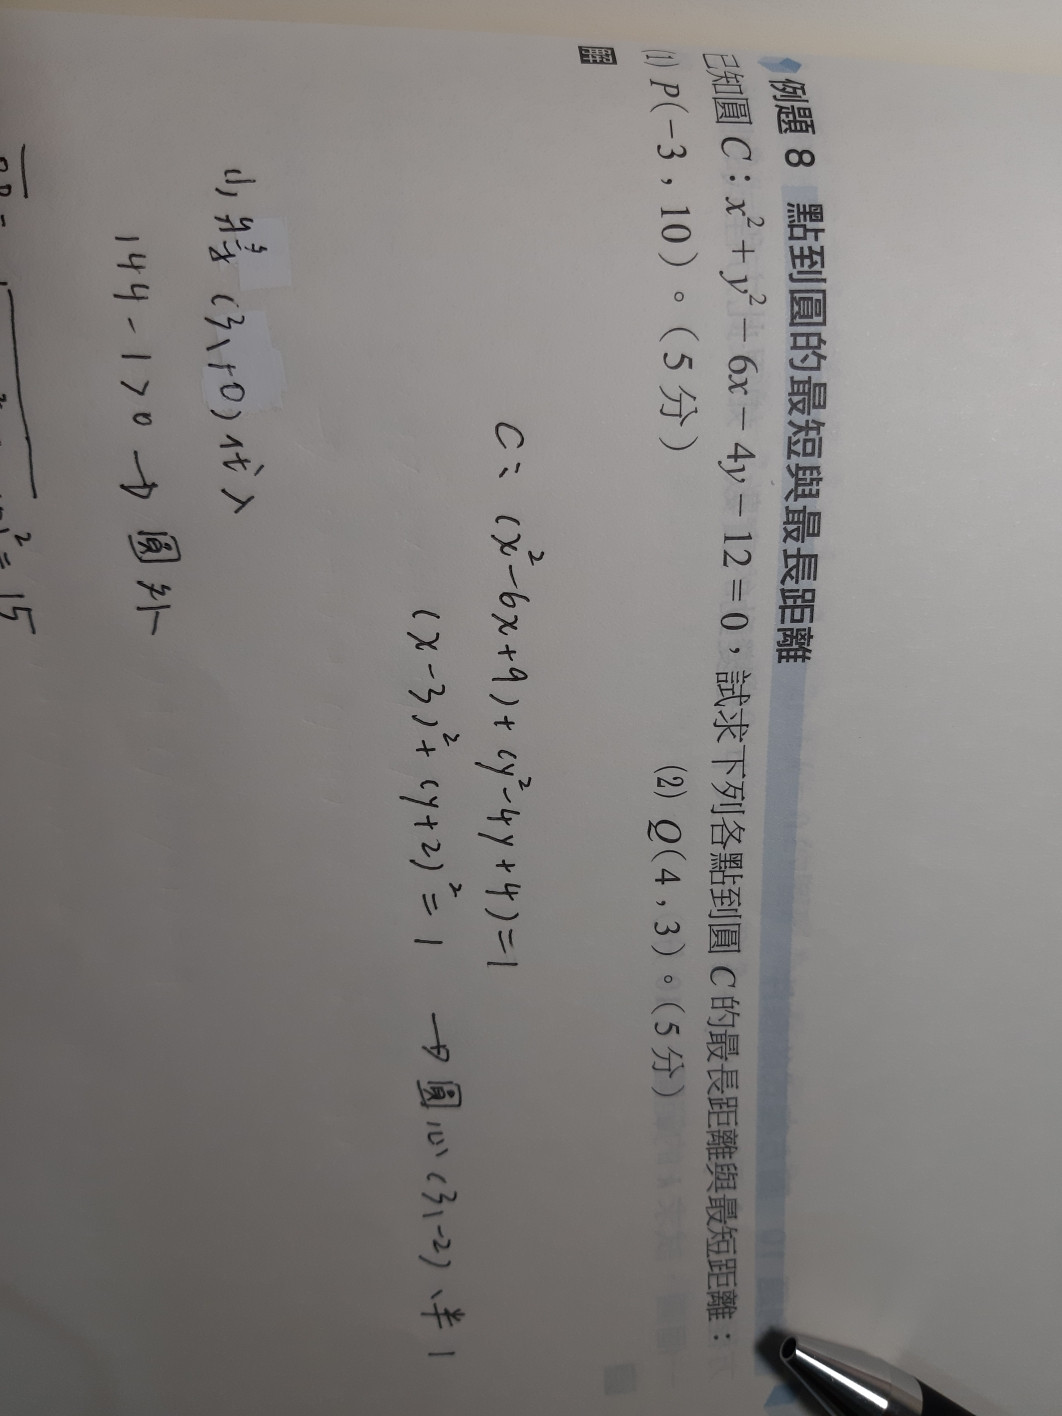 例題 8 點到圓的最短與最長距離
已知圓 C：x²＋y²－6x－4y－12＝0，試求下列各點到圓 C 的最長距離與最短距離：
(1) P(－3，10)。(5 分) (2) Q(4，3)。(5 分)
解
C: (x²-6x+9)+(y²-4y+4)=1
(x-3)²+(y+2)²=1 → 圓心(3,-2) 半1
(1) 將(3,10)代入
144-1>0 → 圓外